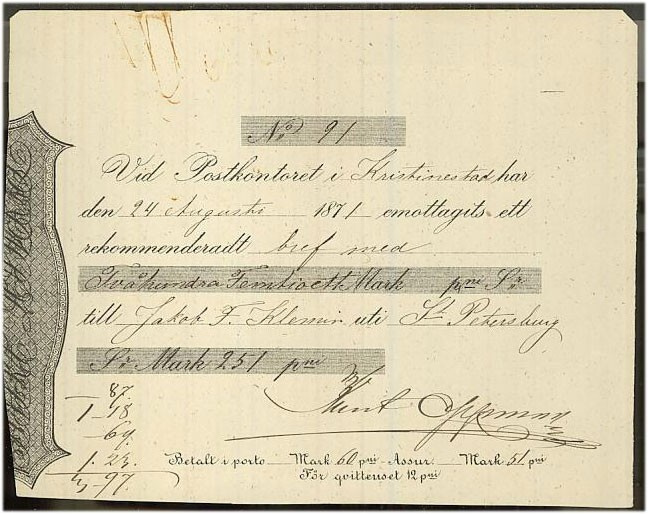 No 91
Vid Postkontoret i Kristinestad har
den 24 Augusti 1871 emottagits ett
rekommenderadt bref med
Tvåhundra Femtioett Mark pni Sr
till Jakob F. Klemin uti St Petersburg
Sr Mark 251 pni
87.
1 - 18
- 69.
1. 23.
3 - 97.
Betalt i porto Mark 60 pni - Assur. Mark 51 pni
För qvittenset 12 pni